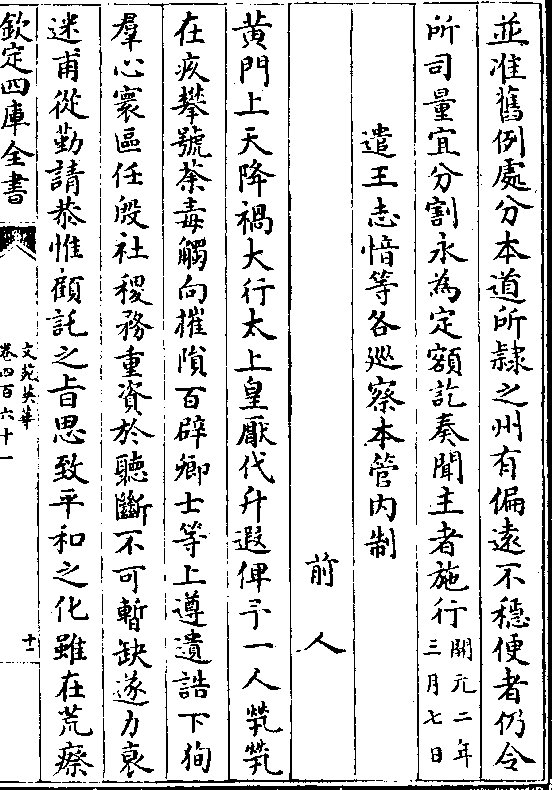 並准舊例處分本道所隷之州有偏遠不穩便者仍令
所司量宜分割永為定額訖奏聞主者施行開元二年三月七日
遣王志愔等各廵察本管内制
前人
黄門上天降禍大行太上皇厭代升遐俾予一人煢煢
在疚攀號荼毒觸向摧隕百辟卿士等上遵遺誥下狥
羣心寰區任殷社稷務重資於聽斷不可暫缺遂力衷
迷甫從勤請恭惟顧託之旨思致平和之化雖在荒瘵
欽定四庫全書
文苑英華
卷四百六十一
十二